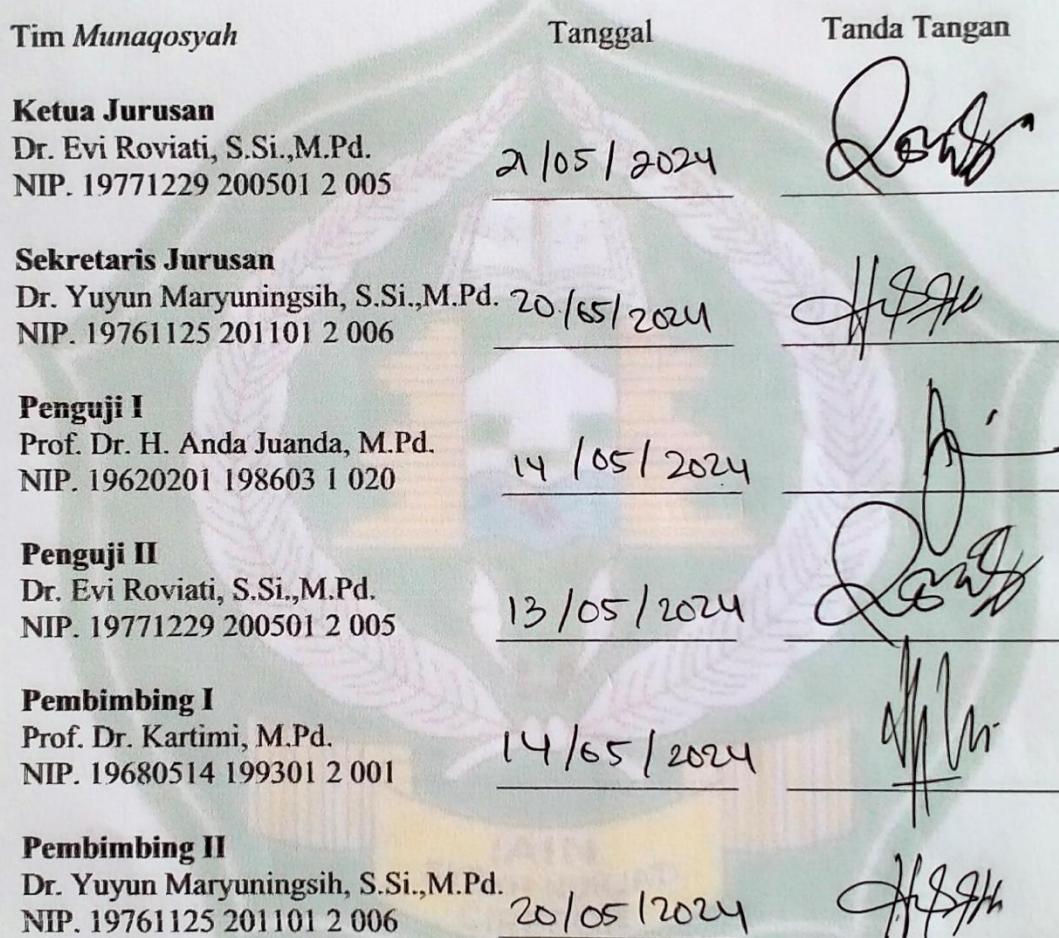 Tim Munaqosyah Tanggal Tanda Tangan
Ketua Jurusan
Dr. Evi Roviati, S.Si.,M.Pd.
NIP. 19771229 200501 2 005
21/05/2024
Sekretaris Jurusan
Dr. Yuyun Maryuningsih, S.Si.,M.Pd.
NIP. 19761125 201101 2 006
20/05/2024
Penguji I
Prof. Dr. H. Anda Juanda, M.Pd.
NIP. 19620201 198603 1 020
14/05/2024
Penguji II
Dr. Evi Roviati, S.Si.,M.Pd.
NIP. 19771229 200501 2 005
13/05/2024
Pembimbing I
Prof. Dr. Kartimi, M.Pd.
NIP. 19680514 199301 2 001
14/05/2024
Pembimbing II
Dr. Yuyun Maryuningsih, S.Si.,M.Pd.
NIP. 19761125 201101 2 006
20/05/2024